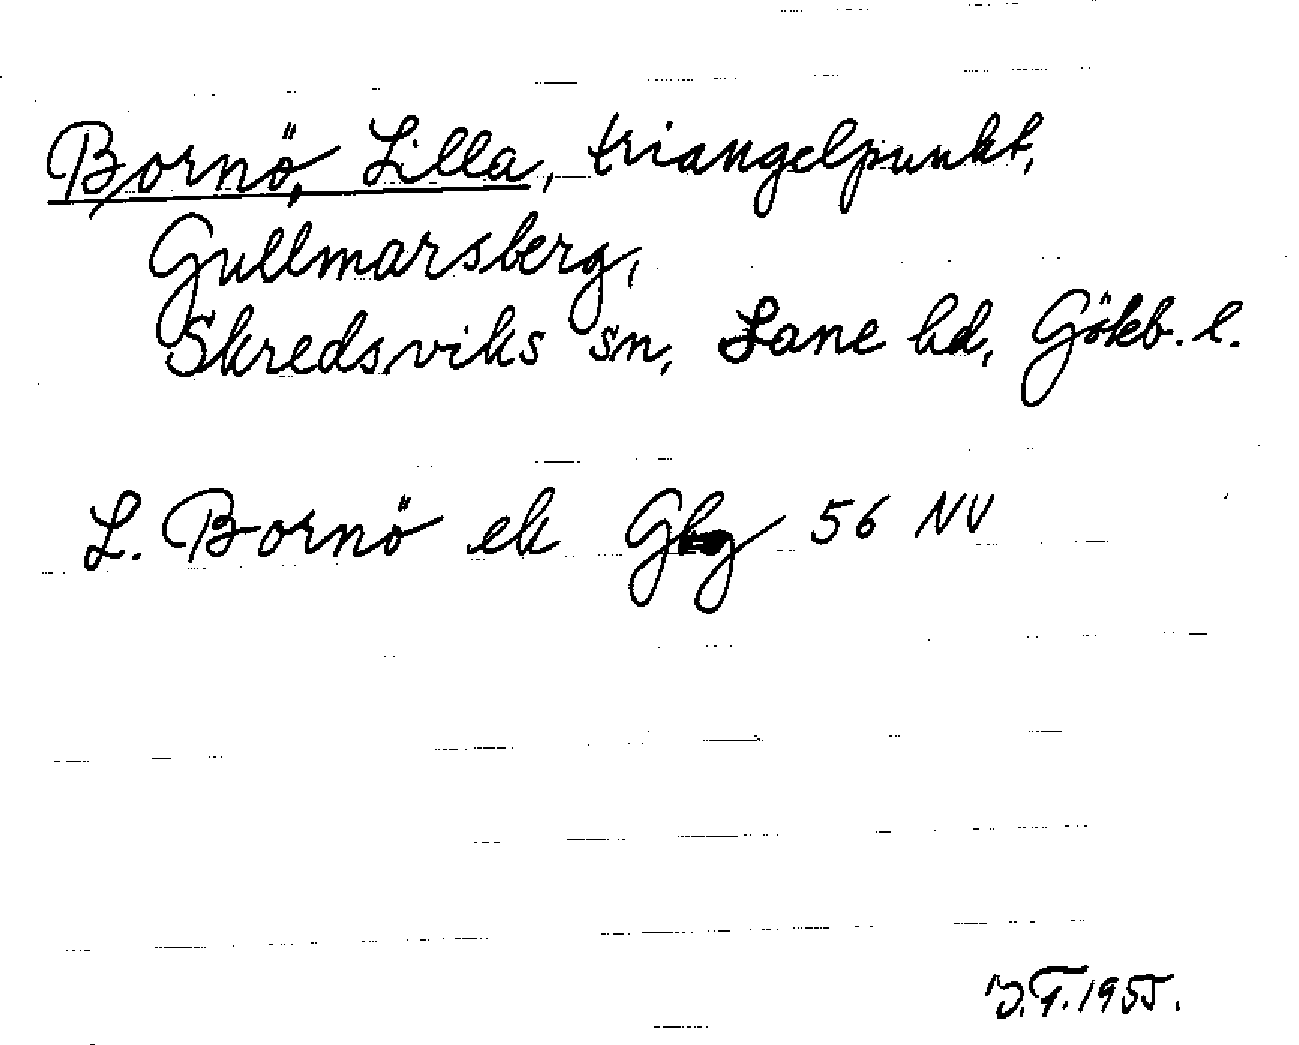 Bornö, Lilla, triangelpunkt,
Gullmarsberg,
Skredsviks sn, Lane hd, Gökb. l.
L. Bornö ek Gbg 56 NV
1955.